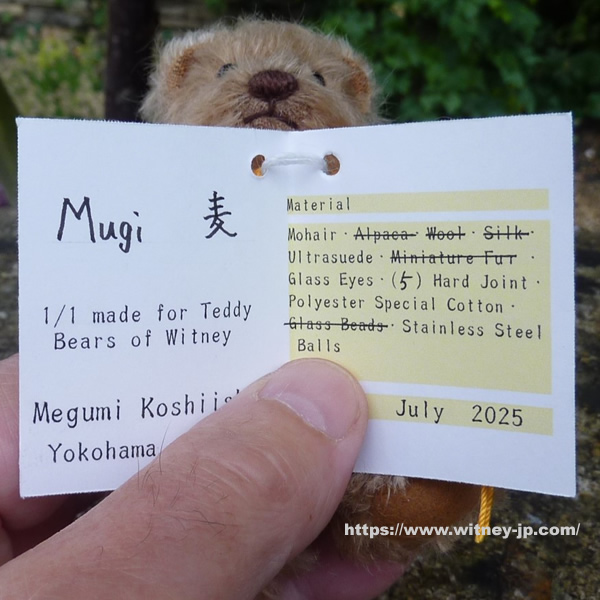 Mugi 麦
1/1 made for Teddy
Bears of Witney
Megumi
Yokohama
Material
Mohair · Alpaca · Wool · Silk ·
Ultrasuede · Miniature Fur ·
Glass Eyes · (5) Hard Joint ·
Polyester Special Cotton ·
Glass Beads · Stainless Steel
Balls
July 2025
https://www.witney-jp.com/